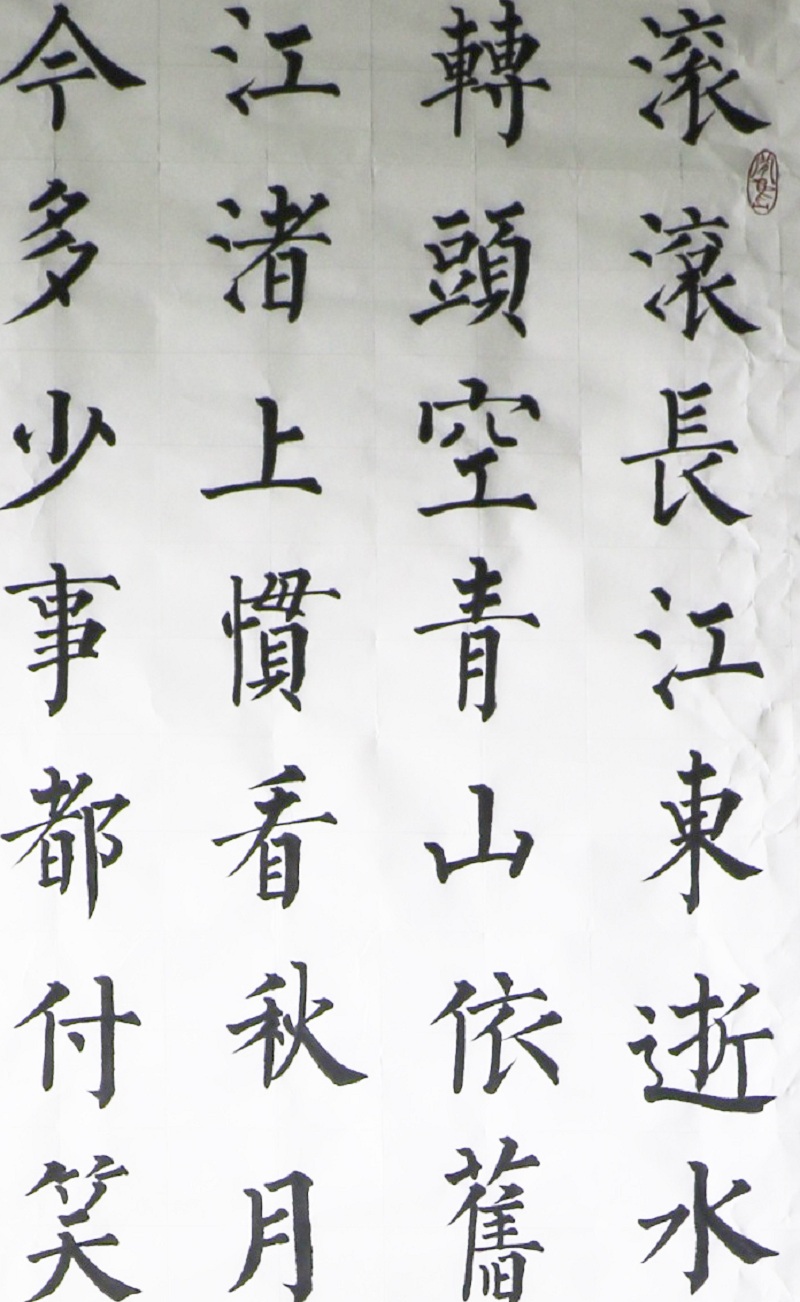 滚滾長江東逝水
轉頭空青山依舊
江渚上慣看秋月
今多少事都付笑